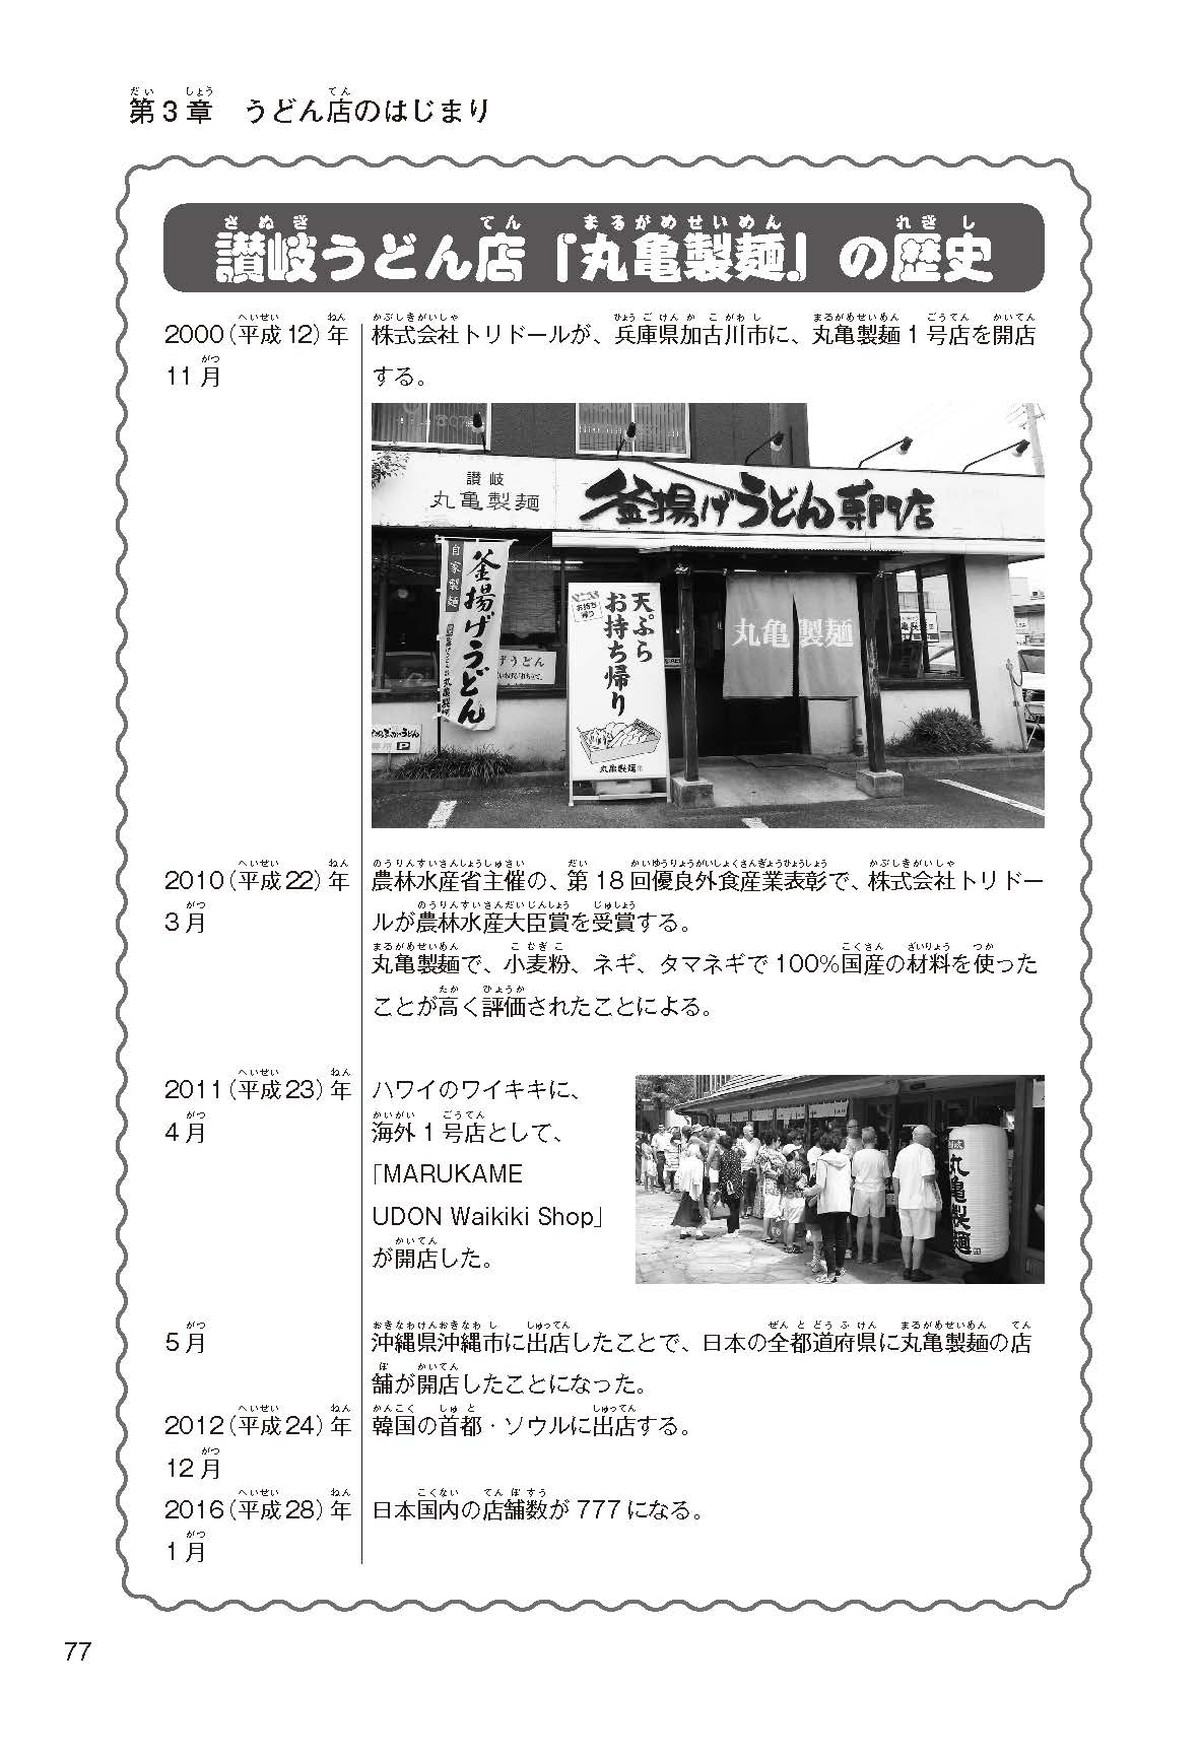 第3章 うどん店のはじまり
讃岐うどん店「丸亀製麺」の歴史
2000(平成12)年
11月
株式会社トリドールが、兵庫県加古川市に、丸亀製麺1号店を開店
する。
讃岐
丸亀製麺
釜揚げうどん専門店
自家製麺
釜揚げうどん
げうどん
天ぷら
お持ち帰り
丸亀製麺
丸亀製麺
2010(平成22)年
3月
農林水産省主催の、第18回優良外食産業表彰で、株式会社トリドー
ルが農林水産大臣賞を受賞する。
丸亀製麺で、小麦粉、ネギ、タマネギで100%国産の材料を使った
ことが高く評価されたことによる。
2011(平成23)年
4月
ハワイのワイキキに、
海外1号店として、
「MARUKAME
UDON Waikiki Shop」
が開店した。
丸亀製麺
5月
沖縄県沖縄市に出店したことで、日本の全都道府県に丸亀製麺の店
舗が開店したことになった。
2012(平成24)年
12月
韓国の首都・ソウルに出店する。
2016(平成28)年
1月
日本国内の店舗数が777になる。
77